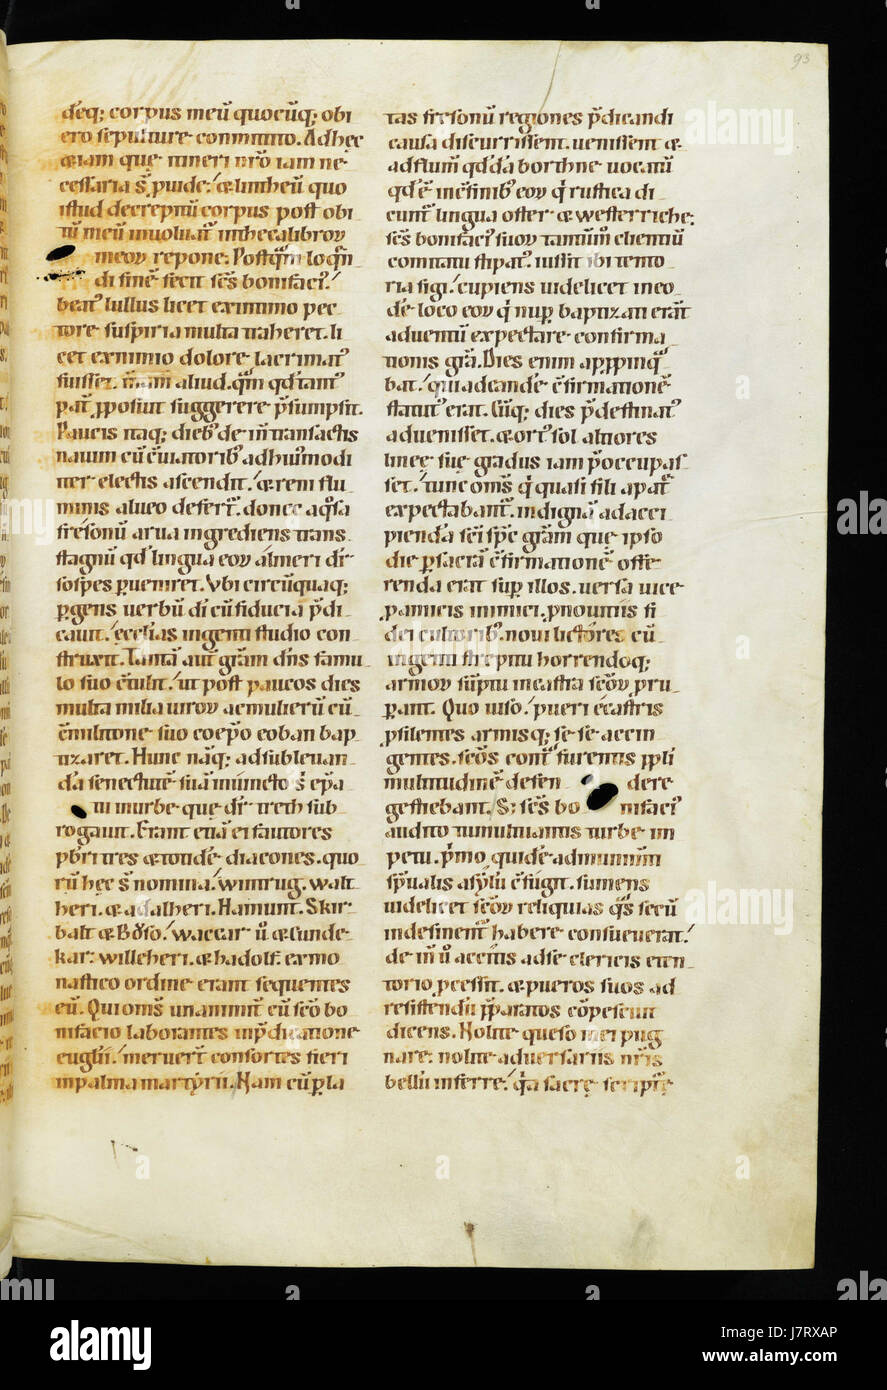 93
deq; corpus meū quocūq; obi
ero sepulture conmitto. Adhec
etiam que itineri nrō iam ne
cessaria s̄ puide. et lintheū quo
istud decrepitū corpus post obi
tū meū inuoluat' inthecalibrov
meov repone. Postq̄m loq̄n
di finē fecit scs bonifaci'.
beat' lullus licet eximmo pec
tore suspiria multa traheret. li
cet eximio dolore lacrimat'
fuisset. aliud. q̄m qd tant'
pat' pposuit suggerere p̄sumpsit.
Paucis itaq; dieb' de intransactis
nauim cū cuiatorib' adhuimodi
iter electis ascendit. et reni flu
minis alueo desert'. donec aq̄sa
fresonū arua ingrediens trans
stagnū qd lingua eov almeri dr̄
sospes pueniret. Vbi circūquaq;
pgens uerbū di cū fiducia p̄di
cauit. ecclias ingenti studio con
struxit. Tantā aut' grām dn̄s famu
lo suo c̄tulit. ut post paucos dies
multa milia uirov ac mulierū cū
c̄militone suo coep̄o eoban bap
tizaret. Hunc nāq; adsubleuan
dā senectutē suā iniuncto s' ep̄a
tu inurbe que dr̄ treth sub
rogauit. Erant etiā ei fautores
pbr̄i tres et totidē diacones. quo
rū hec s̄ nomina. wintrug. walt
heri. et adalheri. Hamunt. Skir
balt et Boso. waccar ū et Cunde
kar: willeheri. et hadolf. ex mo
nastico ordine erant sequentes
eū. Qui om̄s unanimit' cū scō bo
nifacio laborantes inp̄dicatione
eug̅lii. meruer' consortes fieri
inpalma martyrii. Nam cū p la
tas fresonū regiones p̄dicandi
causa discurrissent. uenissent et
adflum̄ qd dā borthne uocatū
qd ē infinib' eov q̄ rustica di
cunt' lingua oster et westerriche:
scs bonifaci' suov tantum̄ clientū
comitatu stipat'. iussit ibi tento
ria figi. cupiens uidelicet in eo
dē loco eov q̄ nup baptizati erāt
aduentū expectare confirma
tionis grā. Dies enim appinq̄
bat. qui adeandē c̄firmationē
statut' erat. Cūq; dies p̄destinat'
aduenisset. et ort' sol altiores
linee sue gradus iam p̄occupas
set. tunc om̄s q̄ quasi fili apat'
expectabant'. indignā adacci
piendā sc̄i sp̄c grām que ipso
die p sacrā c̄firmationē offe
renda erat sup illos. uersa uice
panicis inimici. p nouitiis fi
dei cultorib'. noui lictores cū
ingenti strepitu horrendoq;
armov sūptu incastra scōv pru
pant. Quo uiso. pueri ecastris
psilientes armisq; se se accin
gentes. scōs cont' furentis ppli
multitudinē defen dere
gestiebant. S; scs bo nifaci'
audito tumultuantis turbe im
petu. p̄mo quidē admunim̄
sp̄ualis asylū c̄fugit. sumens
uidelicet scōv reliquias q̄s secū
indesinent' habere consueuerat.
de in ū accitis ad se clericis eten
torio pcessit. et pueros suos ad
resistendū ppatos cōpescuit
dicens. Nolite queso mei pug
nare: nolite aduersariis nr̄is
bellū inferre. q̄a sacre scriptr̄e